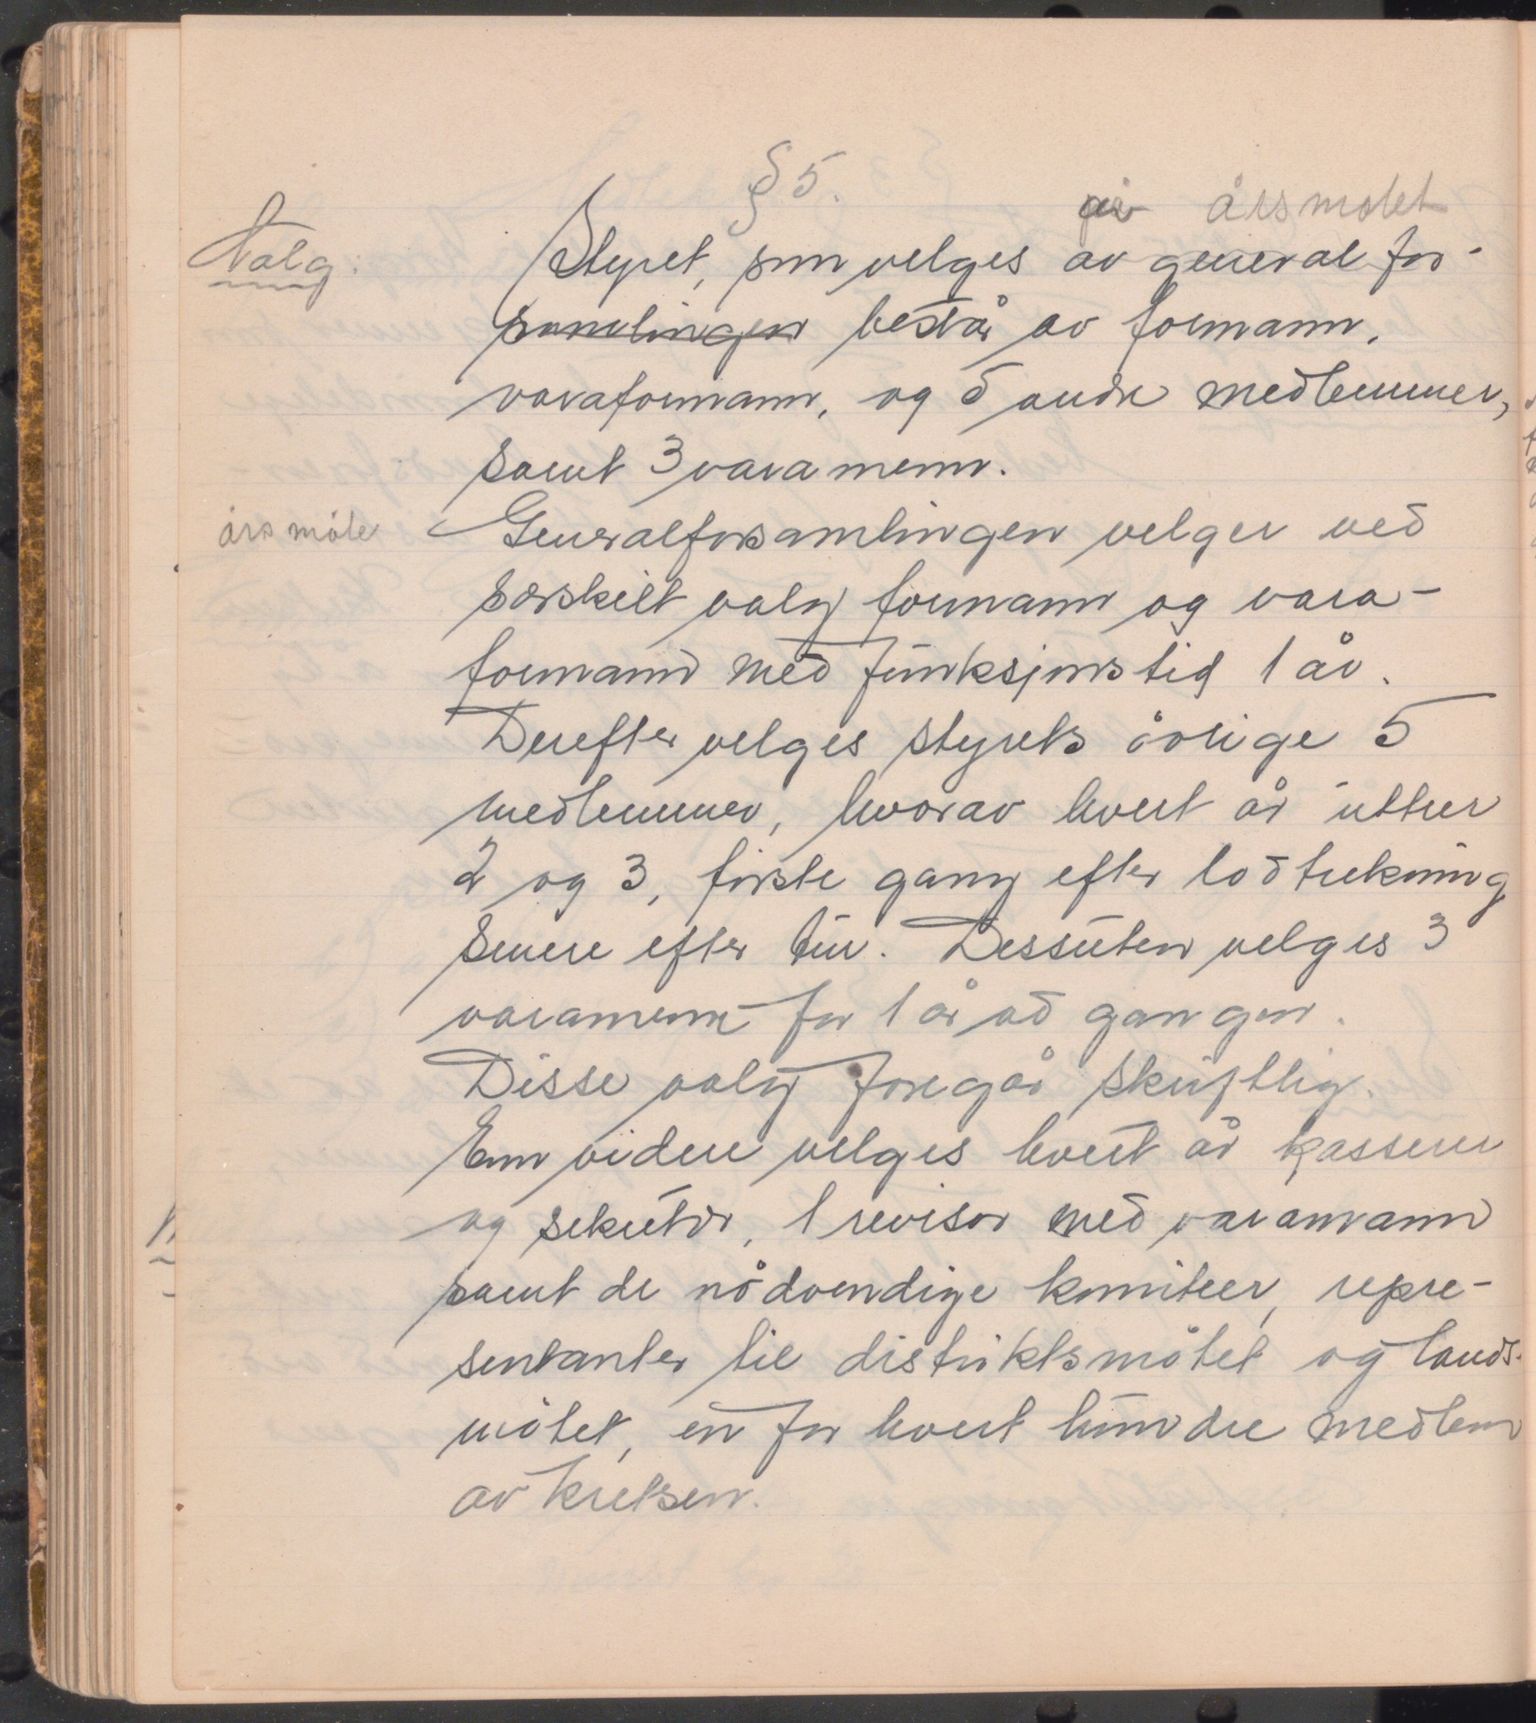 § 5.
på årsmøtet
Valg.
Styret, som velges av generalfor-
samlingen består av formann,
varaformann, og 5 andre medlemmer,
samt 3 varamenn.
årsmøte
Generalforsamlingen velger ved
særskilt valg formann og vara-
formann med funksjonstid 1 år.
Derefter velges styrets övrige 5
medlemmer, hvorav hvert år uttrer
2 og 3, förste gang efter lodtrekning
senere efter tur. Dessuten velges 3
varamenn for 1 år ad gangen.
Disse valg foregår skriftlig.
Enn videre velges hvert år kasserer
og sekretær, 1 revisor med varamann
samt de nödvendige komiteer, repre-
sentanter til distriktsmötet og lands-
mötet, en for hvert hundre medlem
av kretsen.